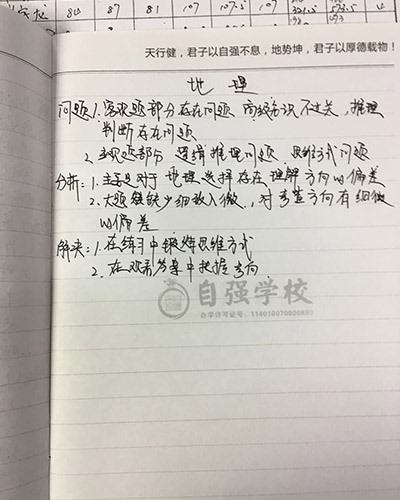 84 87 81 107 107.5 107
天行健,君子以自强不息,地势坤,君子以厚德载物!
地理
问题:1.客观题部分存在问题 高级知识不过关,推理
判断存在问题
2.主观题部分 逻辑推理问题 思维方式问题
分析:1.主要是对于地理选择存在理解方向的偏差
2.大题缺少细致入微,对考查方向有细微
的偏差
解决:1.在练习中锻炼思维方式
2.在观看答案中把握方向
自强学校
办学许可证号: